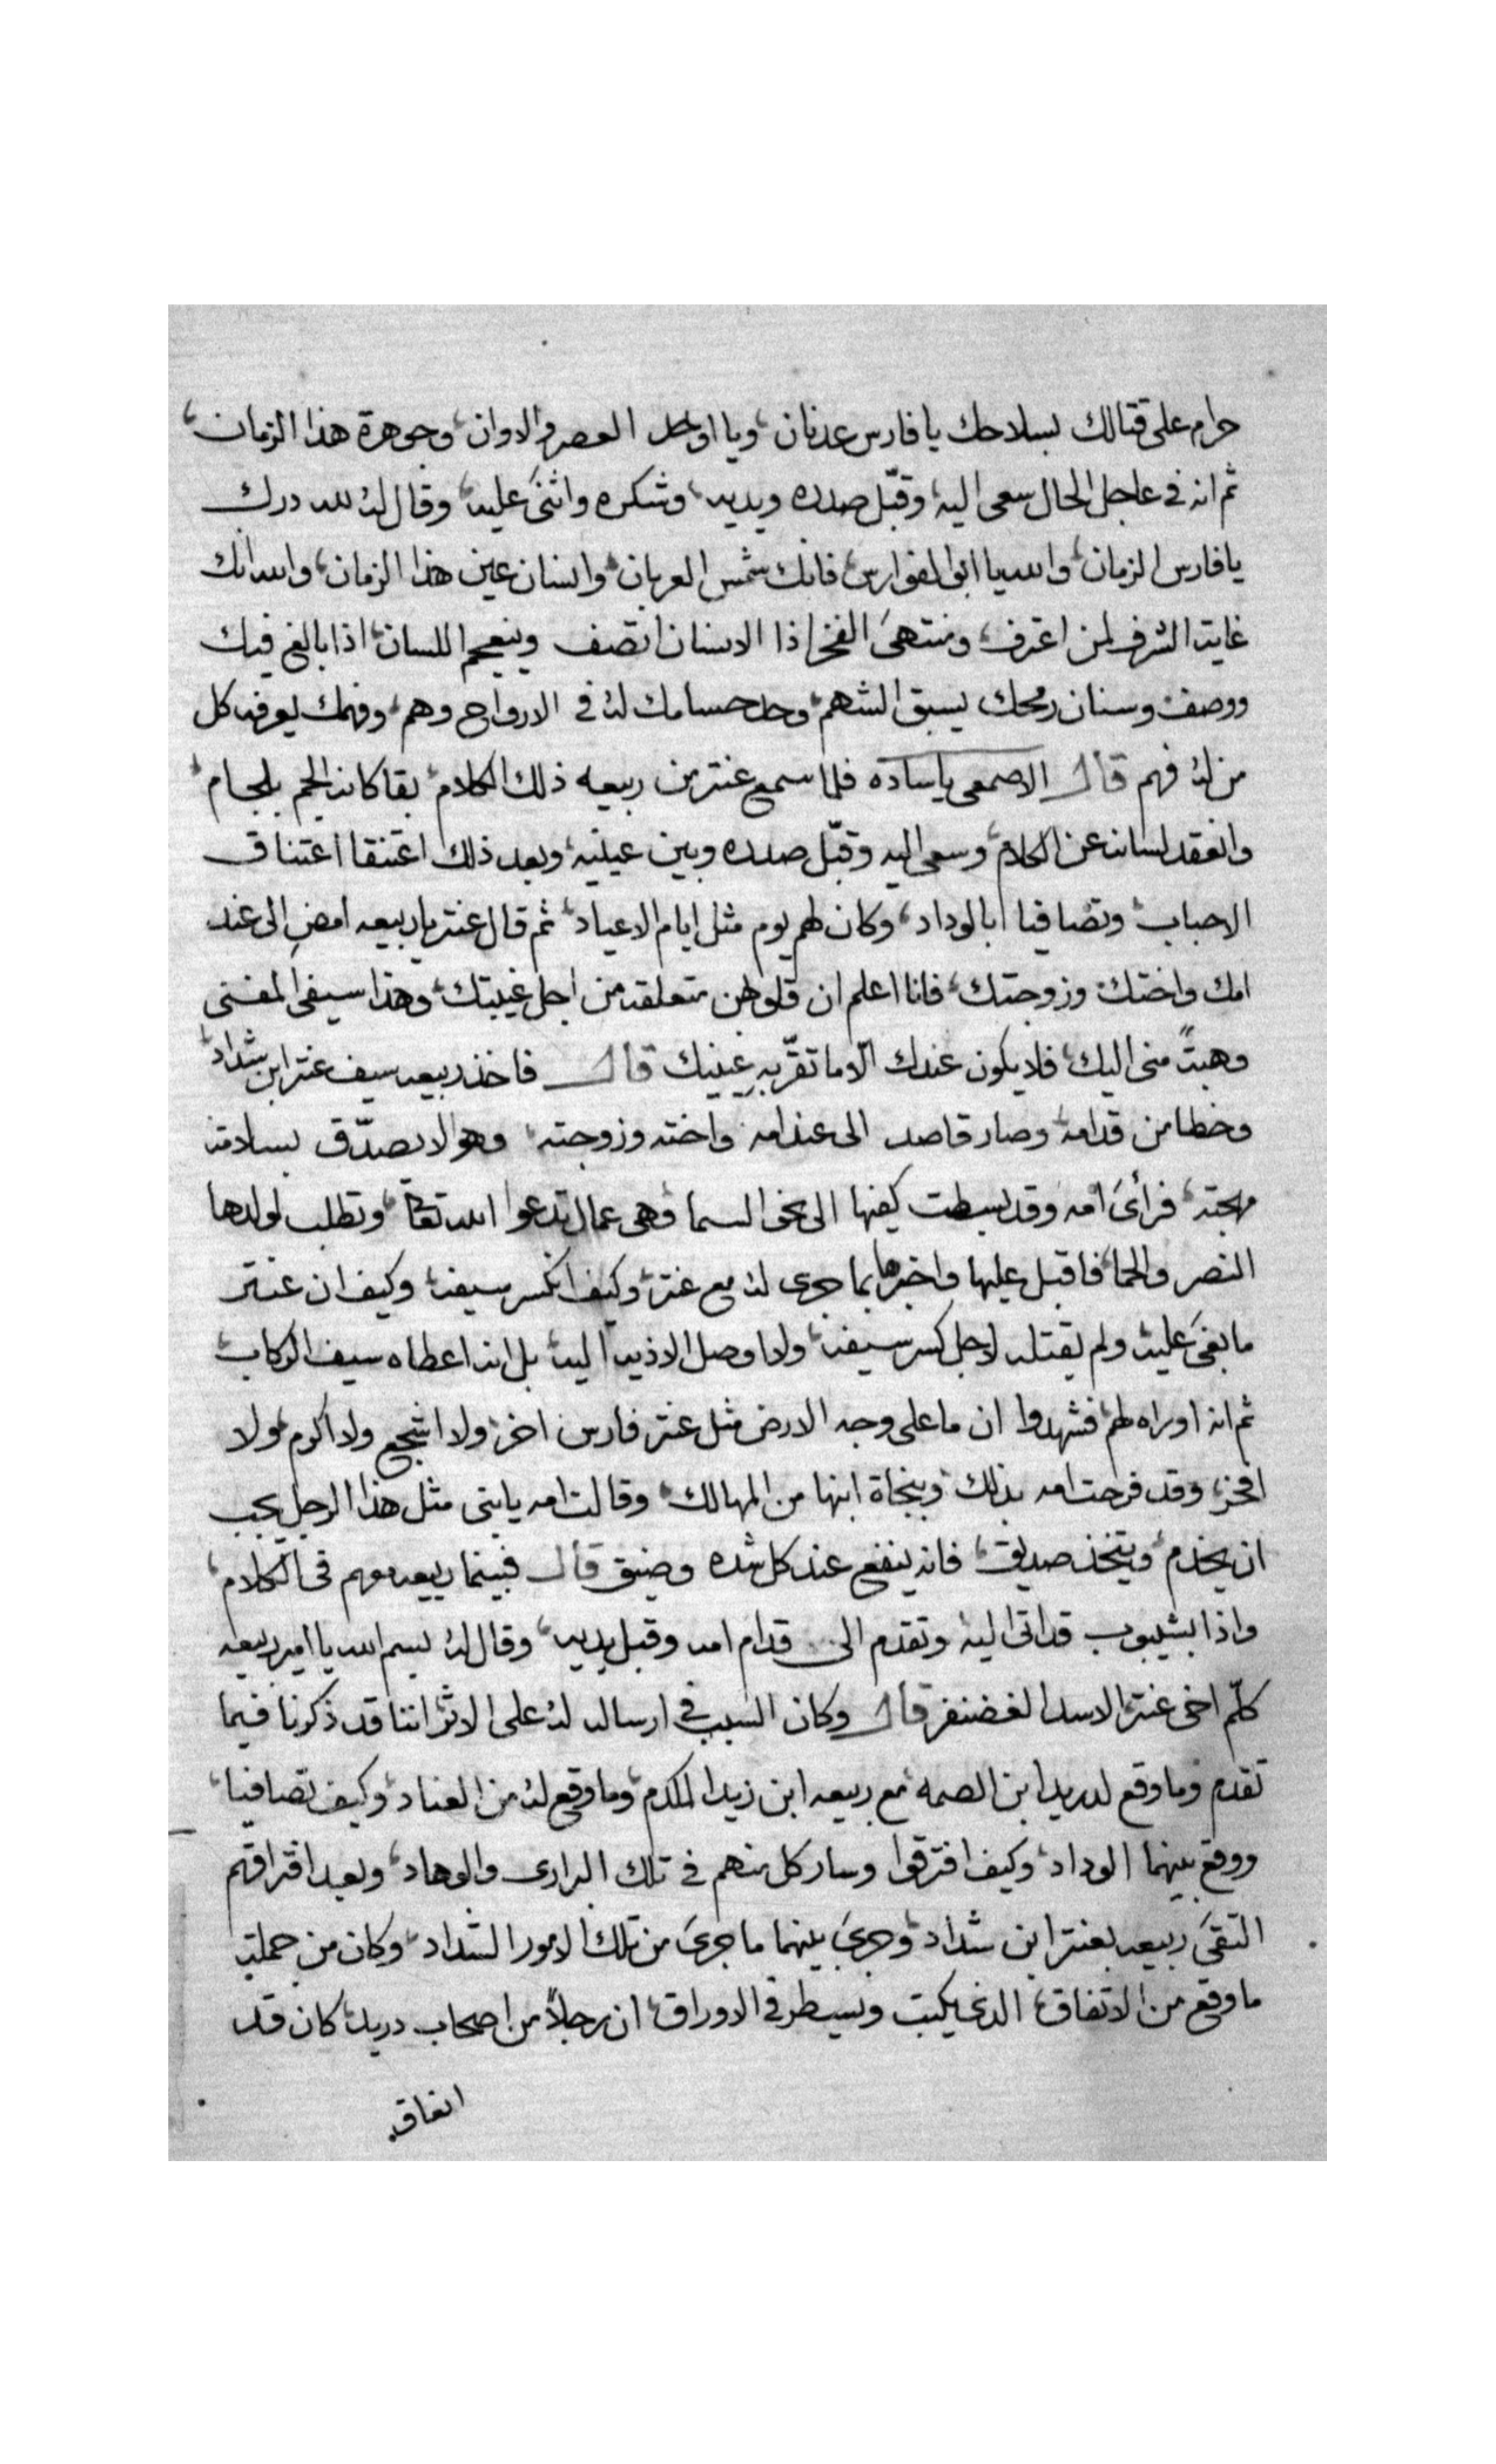 حرام على قتالك بسلاحك يا فارس عدنان، ويا اوحد العصر والاوان، وجوهرة هذا الزمان،
ثم انه في عاجل الحال سعى اليه، وقبّل صدره ويديه، وشكره واثنى عليه، وقال له لله درك
يا فارس الزمان، والله يا ابو الفوارس، فانك شمس العربان، وانسان عين هذا الزمان، والله انك
غاية الشرف لمن اعترف، ومنتهى الفخر اذا الانسان اتصف وينعجم اللسان، اذا بالغ فيك
ووصف، وسنان رمحك يسبق الشهم، وحد حسامك له في الارواح وهم، وفهمك يعرفه كل
من له فهم قال الاصمعى يا ساده فلما سمع عنتر من ربيعه ذلك الكلام، بقا كانه الجم بلجام،
وانعقد لسانه عن الكلام، وسعى اليه وقبّل صدره وبين عينيه، وبعد ذلك اعتنقا اعتناق
الاحباب، وتصافيا بالوداد، وكان لهم يوم مثل ايام الاعياد، ثم قال عنتر يا ربيعه امضِ الى عند
امك واختك وزوجتك، فانا اعلم ان قلوبهن متعلقه من اجل غيبتك، وهذا سيفى المفنى
وهبتً منى اليك، فلا يكون عندك الّا ما تقرّ به عينيك قال فاخذ ربيعه سيف عنتر ابن شداد،
وخطا من قدامه، وصار قاصد الى عند امه واخته وزوجته، وهو لا يصدّق بسلامة
مهجته، فرأى امه وقد بسطت كفيها الى نحو السما، وهى عمال تدعوا الله تعالى، وتطلب لولدها
النصر والحما، فاقبل عليها واخبرها بما جرى له مع عنتر، وكيف انكسر سيفه، وكيف ان عنتر
ما بغى عليه، ولم يقتله لاجل كسر سيفه، ولا اوصل الاذيه اليه، بل انه اعطاه سيف الركاب،
ثم انه اوراه لهم، فشهدوا ان ما على وجه الارض مثل عنتر فارس اخر، ولا اشجع ولا اكرم، ولا
افخر، وقد فرحت امه بذلك، وبنجاة ابنها من المهالك، وقالت امه يا بنى مثل هذا الرجل يجب
ان يخدم، ويتخذ صديق، فانه ينفع عند كل شده وضيق قال فبينما ربيعه معهم فى الكلام،
واذا بشيبوب قد اتى اليه، وتقدم الى قدام امه وقبل يديه، وقال له بسم الله يا امير ربيعه
كلّم اخى عنتر، الاسد الغضنفر قال وكان السبب في ارساله له على الاثر، اننا قد ذكرنا فيما
تقدم وما وقع لدريد ابن الصمه، مع ربيعه ابن زيد المكدم، وما وقع له من العناد، وكيف تصافيا،
ووقع بينهما الوداد، وكيف افترقوا وسار كل منهم في تلك البرارى والوهاد، وبعد افتراقهم
التقى ربيعه بعنتر ابن شداد، وجرى بينهما ما جرى من تلك الامور الشداد، وكان من جملة
ما وقع من الاتفاق، الذى يكتب ويسطر في الاوراق، ان رجلاً من اصحاب دريد، كان قد
انعاق